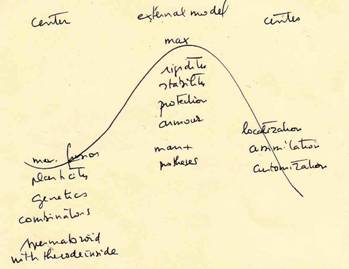 center
external model
center
max
rigidity
stability
protection
armour
man +
protheses
max. fusion
plasticity
genetics
combinators
spermatozoid
with the code inside
localization
assimilation
automization